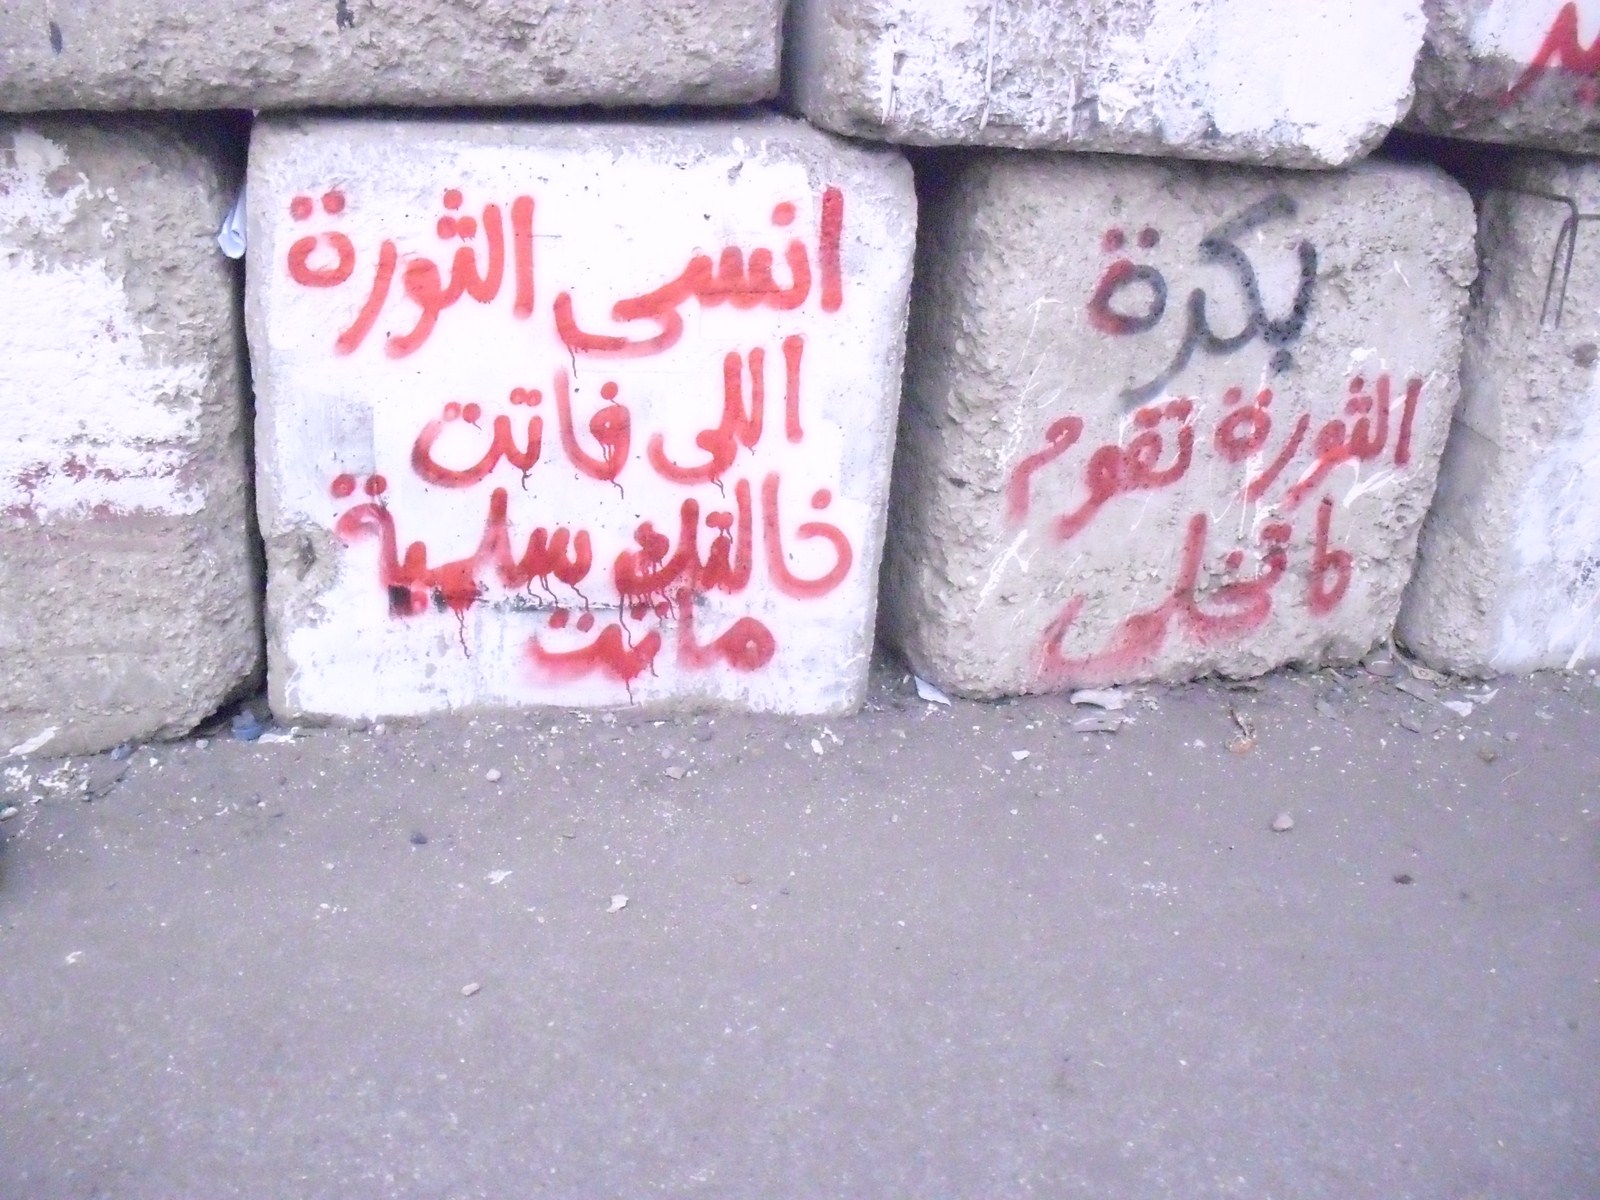 انسى الثورة
اللى فاتت
خالتك سلمية
ماتت
بكرة
الثورة تقوم
ماتخلى